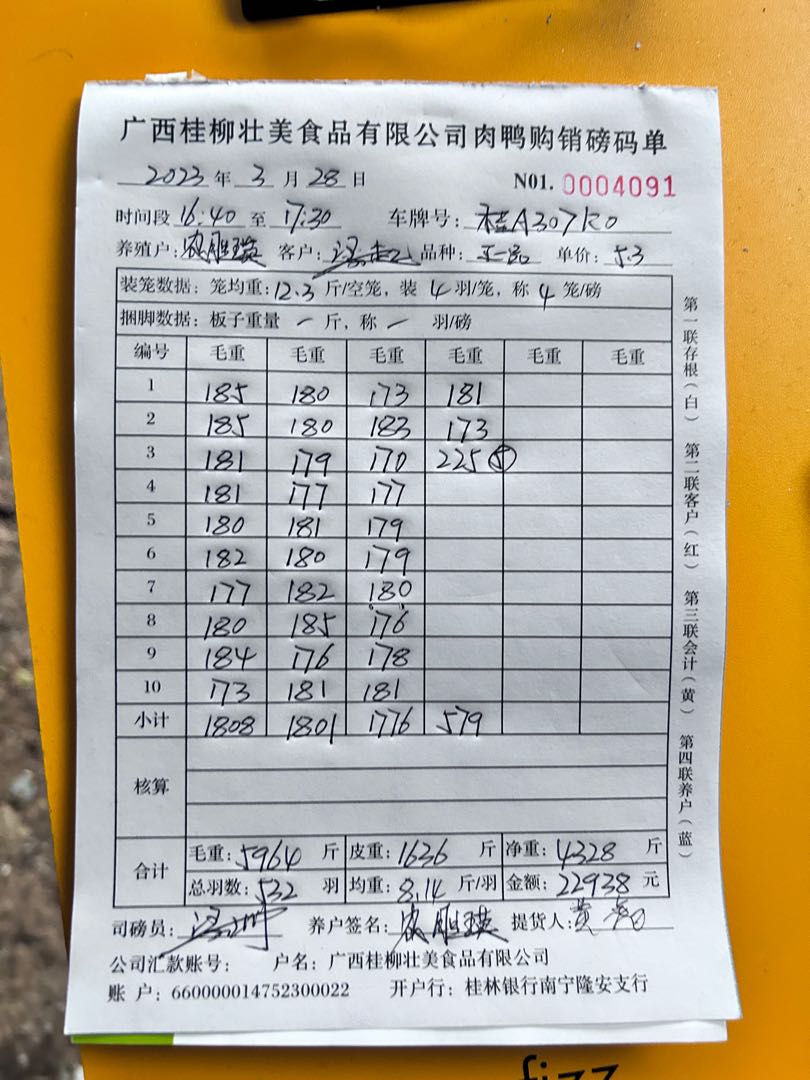 广西桂柳壮美食品有限公司肉鸭购销磅码单
2023 年 3 月 28 日 N01. 0004091
时间段 16:40 至 17:30 车牌号: 桂A307K0
养殖户: 农胜瑛 客户: 品种: 单价: 5.3
装笼数据: 笼均重: 12.3 斤/空笼, 装 4 羽/笼, 称 4 笼/磅
捆脚数据: 板子重量 一 斤, 称 一 羽/磅
编号 毛重 毛重 毛重 毛重 毛重 毛重
1 185 180 173 181
2 185 180 183 173
3 181 179 170 225⑤
4 181 177 177
5 180 181 179
6 182 180 179
7 177 182 180
8 180 185 176
9 184 176 178
10 173 181 181
小计 1808 1801 1776 579
核算
合计 毛重: 5964 斤 皮重: 1636 斤 净重: 4328 斤
总羽数: 532 羽 均重: 8.14 斤/羽 金额: 22938 元
司磅员: 养户签名: 农胜瑛 提货人: 黄
公司汇款账号: 户名: 广西桂柳壮美食品有限公司
账 户: 660000014752300022 开户行: 桂林银行南宁隆安支行
第一联存根(白) 第二联客户(红) 第三联会计(黄) 第四联养户(蓝)
fizz